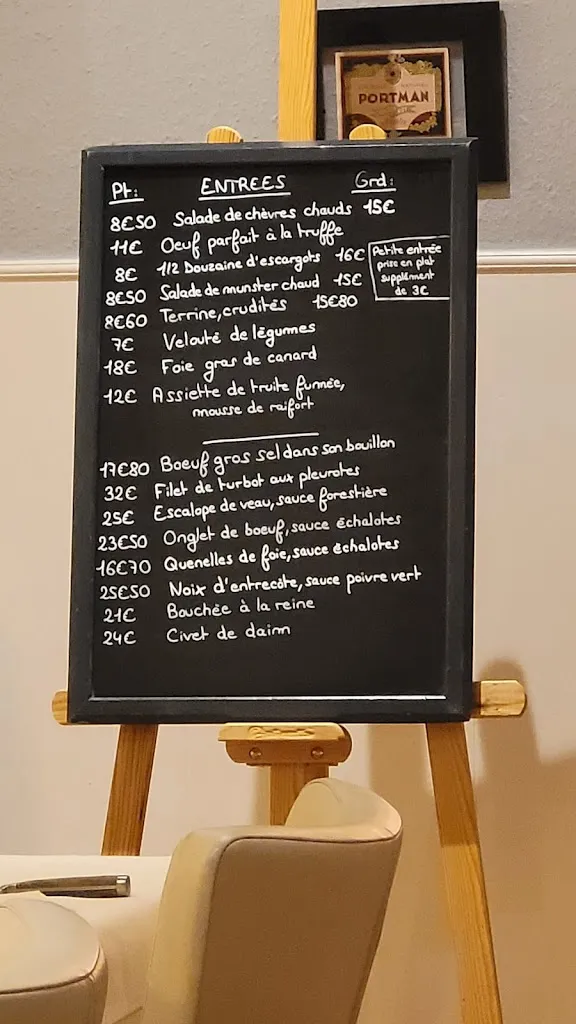 PORTMAN
Pt: ENTREES Grd:
8€50 Salade de chèvres chauds 15€
11€ Oeuf parfait à la truffe
8€ 1/2 Douzaine d'escargots 16€
8€50 Salade de munster chaud 15€
8€60 Terrine, crudités 15€80
7€ Velouté de légumes
18€ Foie gras de canard
12€ Assiette de truite fumée,
mousse de raifort
Petite entrée
prise en plat
supplément
de 3€
17€80 Boeuf gros sel dans son bouillon
32€ Filet de turbot aux pleurotes
25€ Escalope de veau, sauce forestière
23€50 Onglet de boeuf, sauce échalotes
16€70 Quenelles de foie, sauce échalotes
25€50 Noix d'entrecôte, sauce poivre vert
21€ Bouchée à la reine
24€ Civet de daim